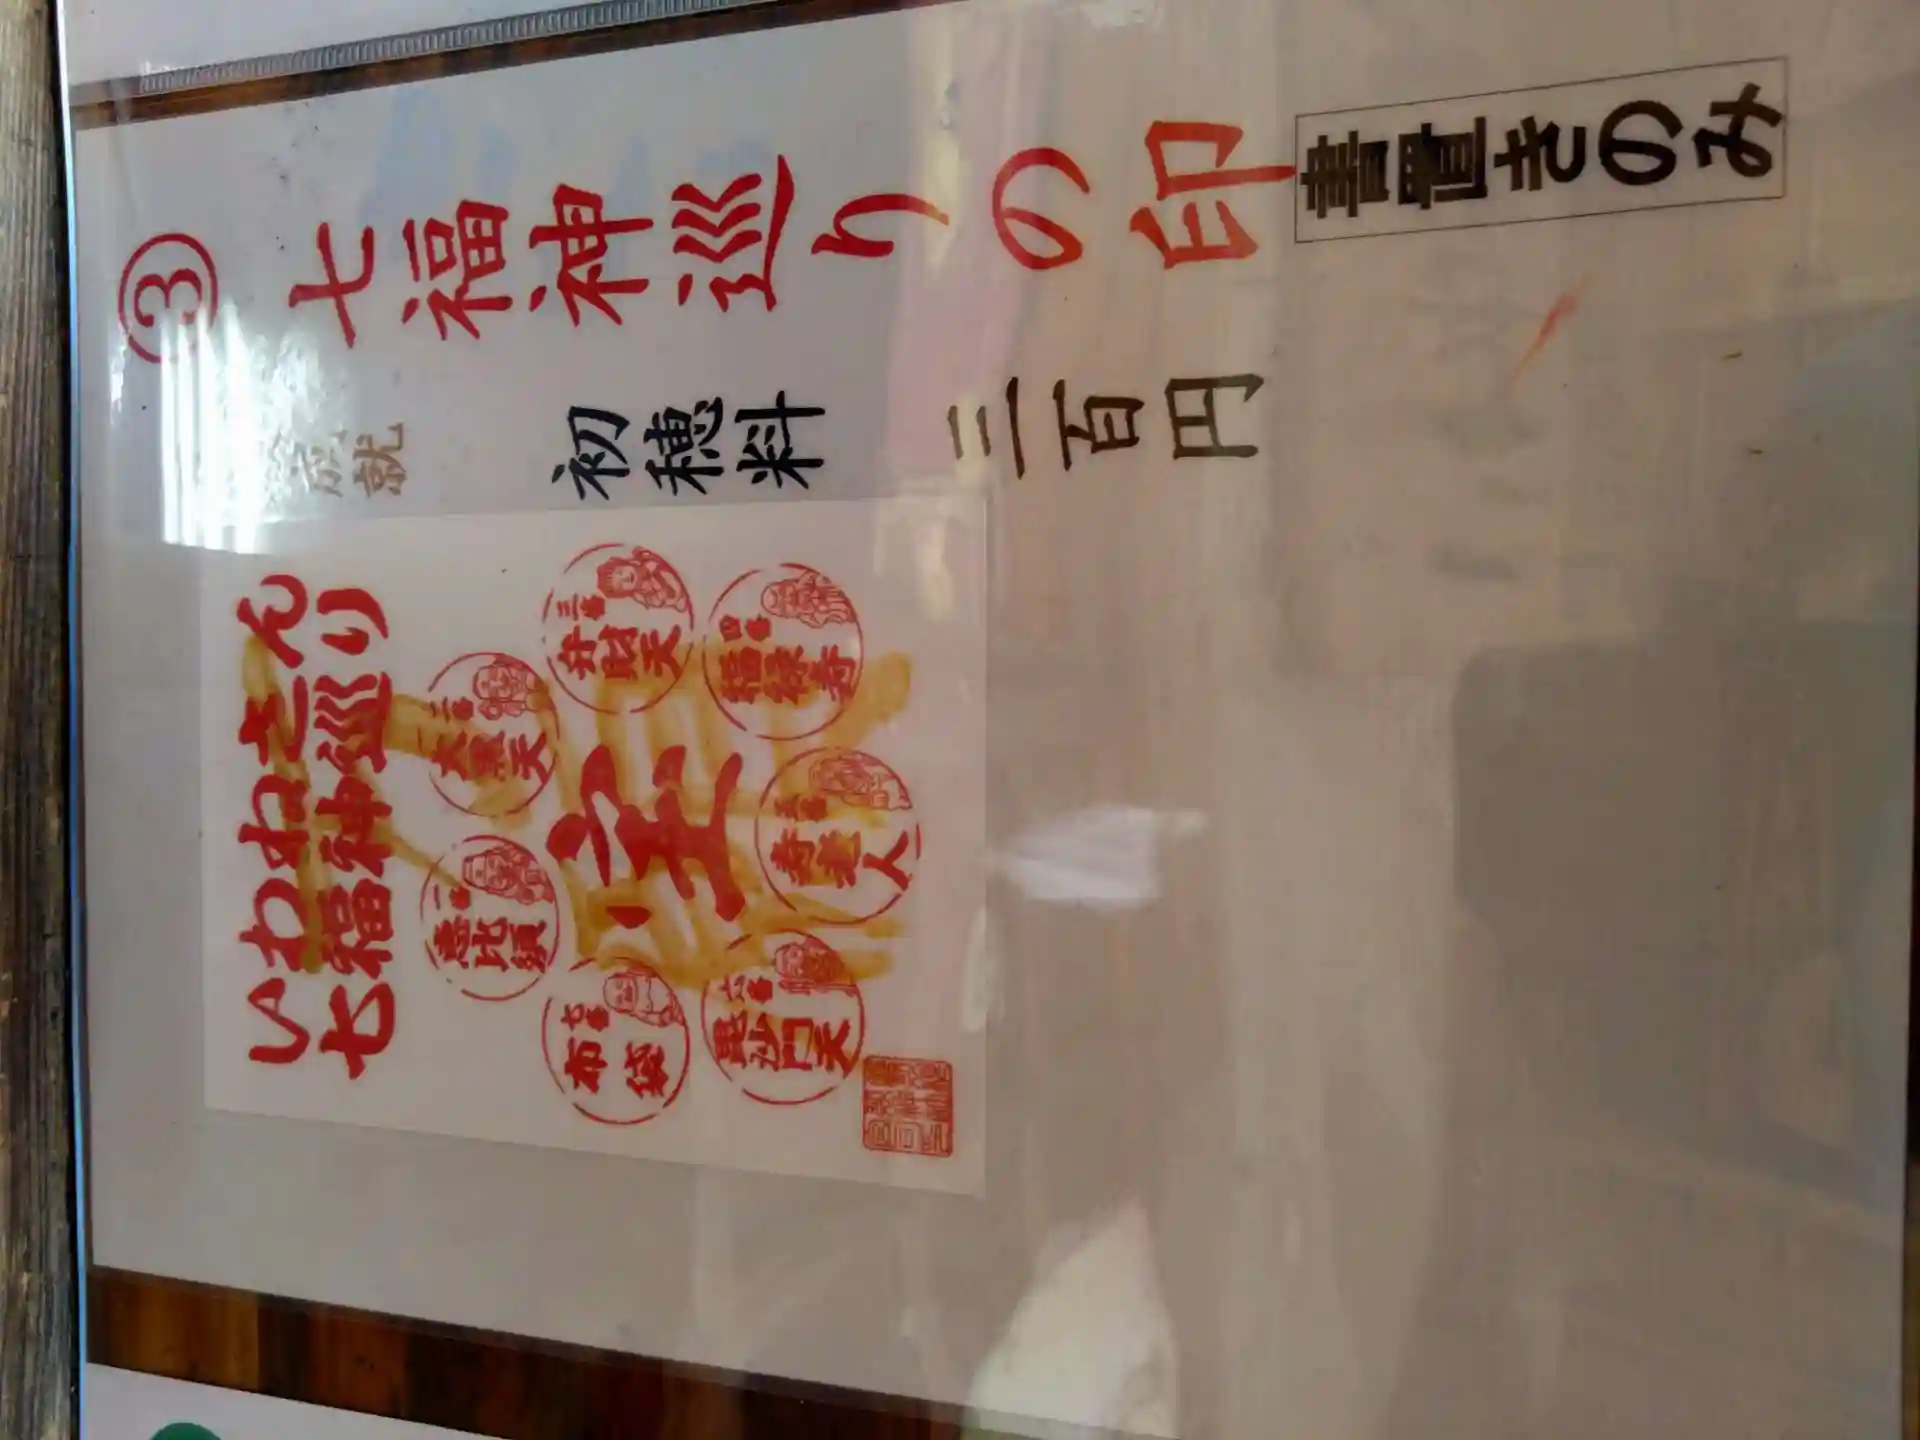 ③七福神巡りの印
書置きのみ
初穂料 三百円
成就
いわねさん
七福神巡り
宝
一番
恵比須
二番
大黒天
三番
弁財天
四番
福禄寿
五番
寿老人
六番
毘沙門天
七番
布袋